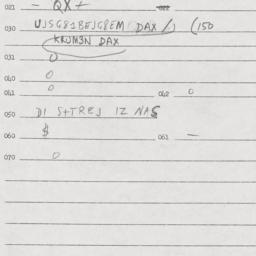 021 — QX+ 022
030 UJSG81BEJG8EM DAX / (150
KRUM3N DAX
031 0
040 0
041 0 042 0
050 DI S+TREJ IZ NAS
060 $ 061 —
070 0